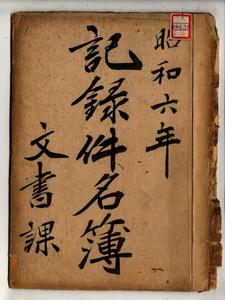 昭和六年
記録件名簿
文書課